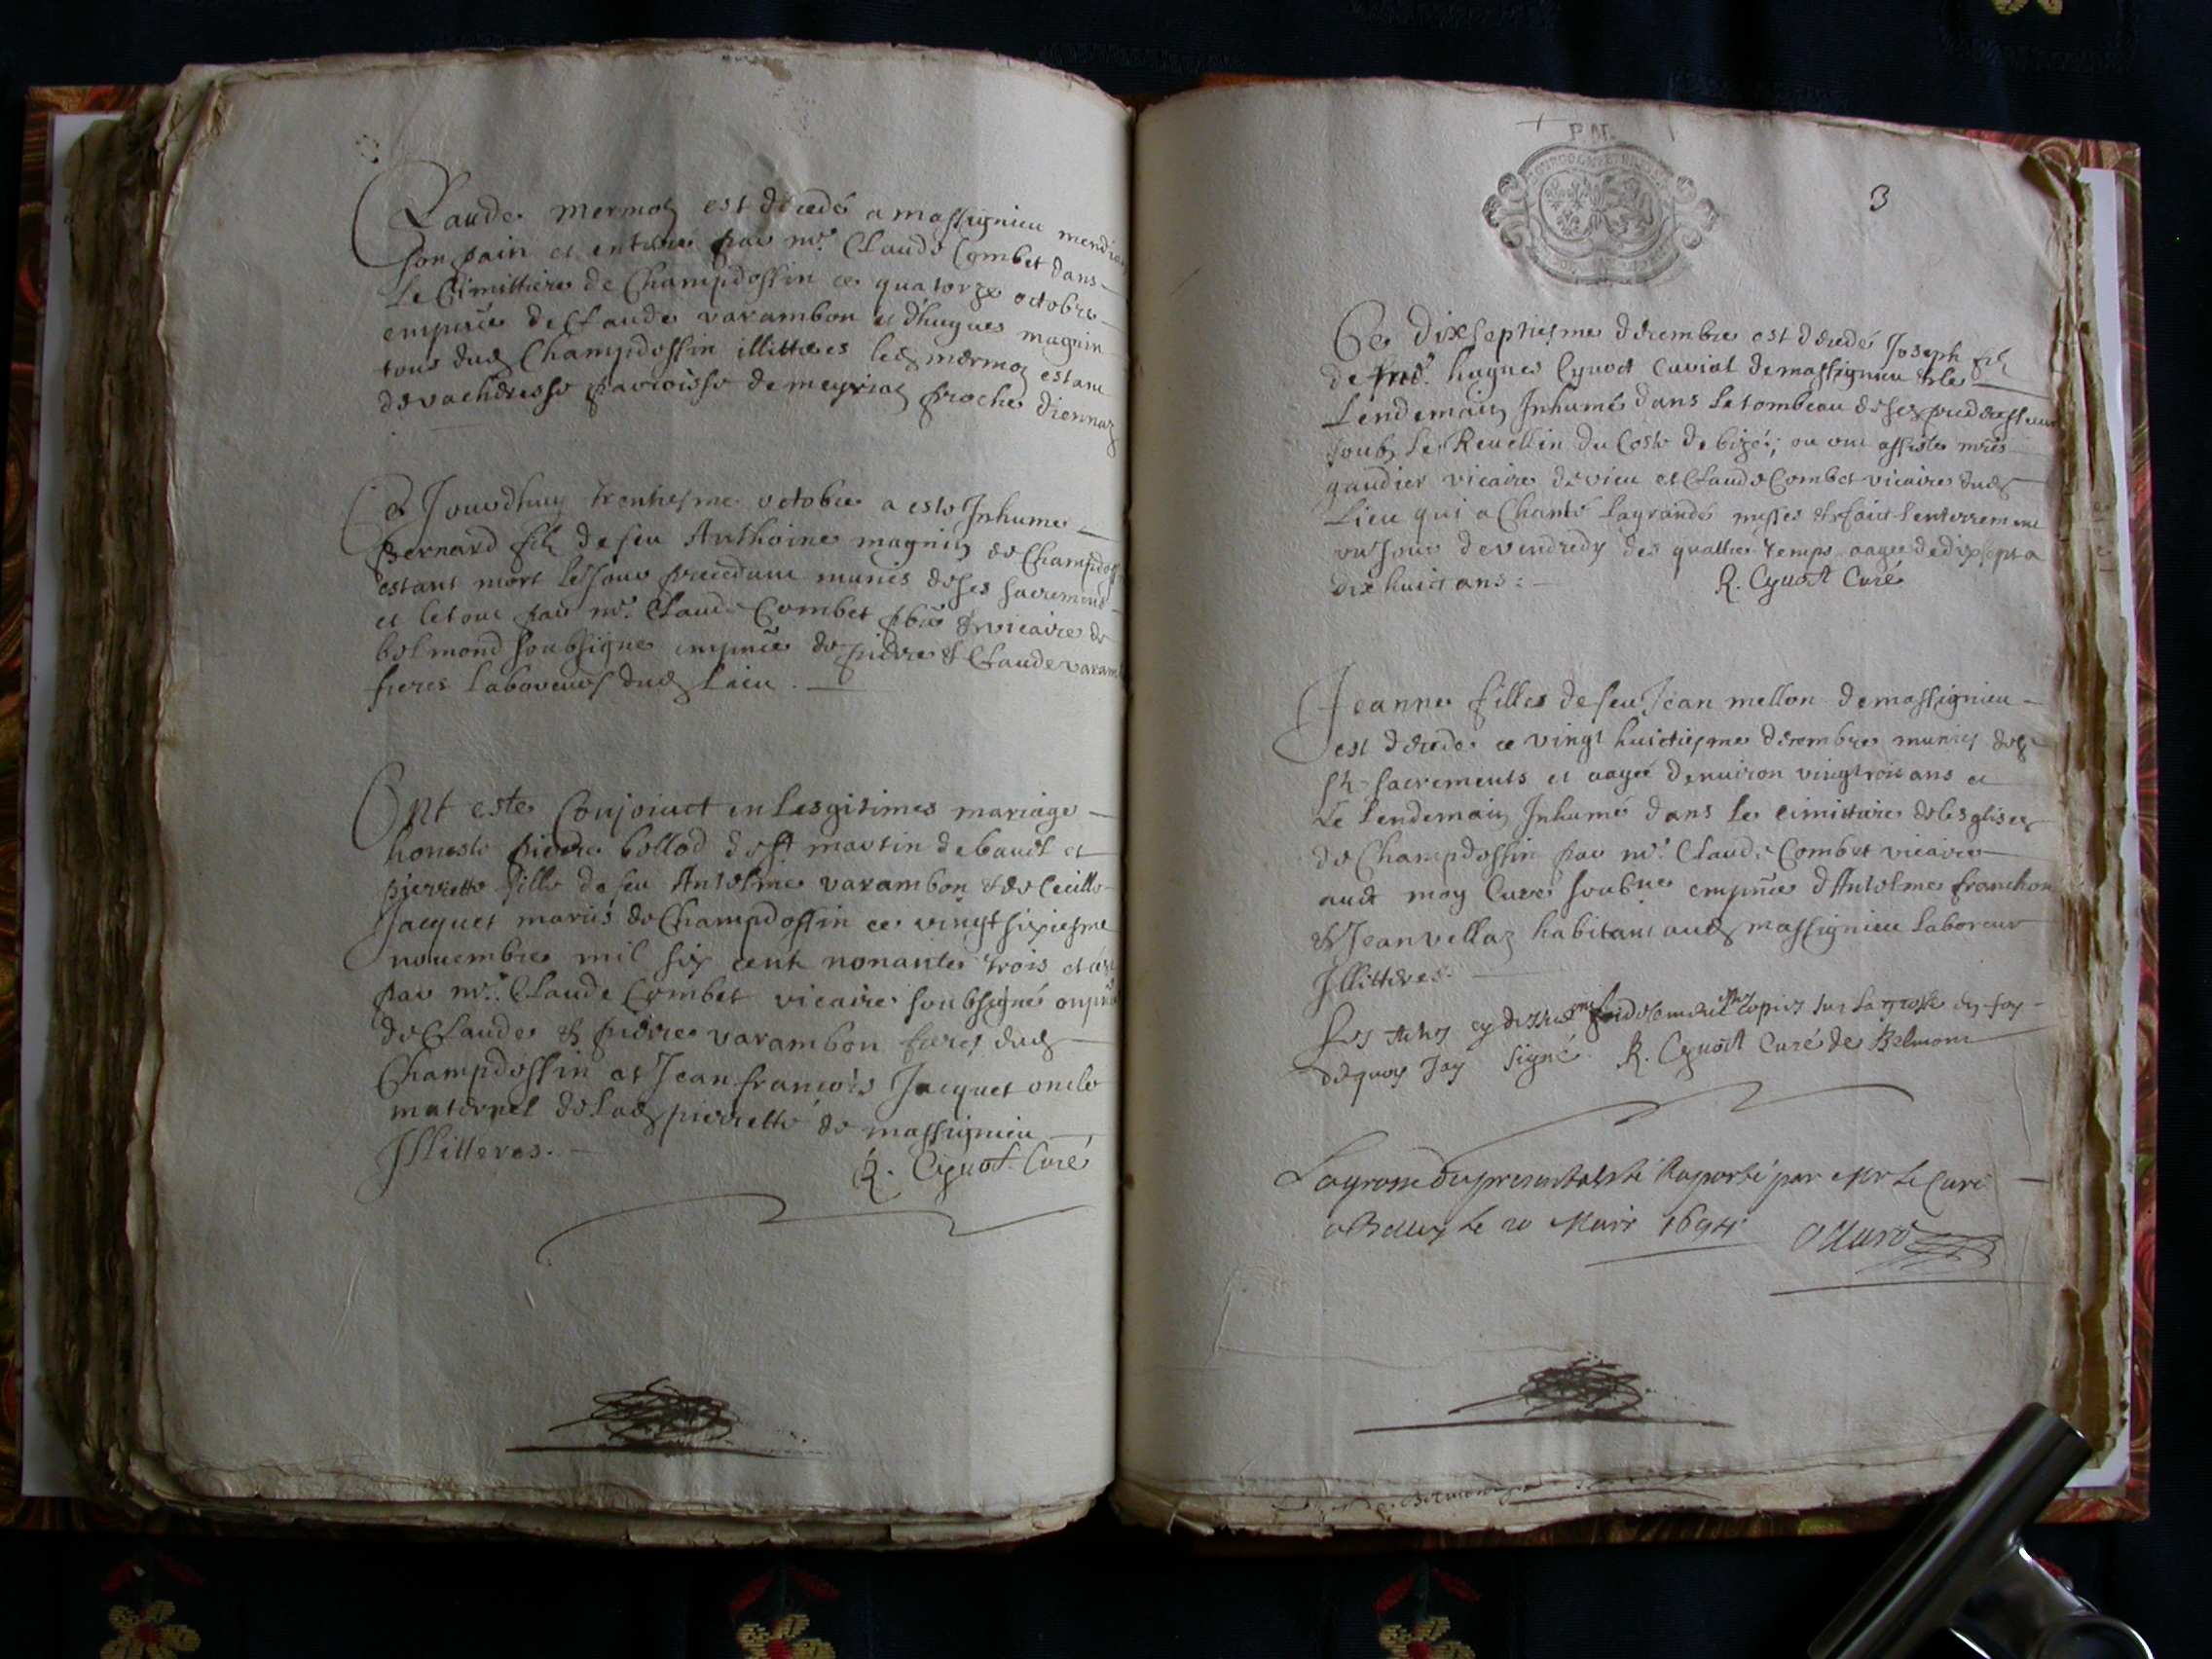 Claude mermoz est decedé a massignieu mendian
son pain et enterré par mr. Claude Combet dans
Le Cimittiere de Champdossin ce quatorze octobre
empnce de Claude varambon et d'hugues magnin
tous dud Champdossin illitteres led mermoz estant
de vachéresse parroisse de meyriaz proche diennaz
Ce Jourdhuy trentiesme octobre a este Inhumé
Bernard filz de feu Anthoine magnin de Champdoss
estant mort le Jour precedant munis de ses sacrements
et le tout par mr. Claude Combet pbre & vicaire de
belmond soubsigné empnce de pierre & Claude varam
freres Laboureurs dud Lieu.
Ont este Conjoinct en Lesgitimes mariage
honeste pierre bollod de st martin de bavel et
pierrette fille de feu Antelme varambon & de Cecille
Jacquet mariés de Champdossin ce vingt sixiesme
novembre mil six cent nonante trois et ce
par mr. Claude Combet vicaire soubsigné enpnce
de Claude & pierre varambon freres dud
Champdossin et Jean francois Jacquet oncle
maternel de lad pierrette de massignieu
Illitteres.
R. Cynot Curé
P. M.
3
Ce Dixseptiesme decembre est decedé Joseph filz
de mr. hugues Cynot Curial de massignieu & le
Lendemain Inhumé dans le tombeau de ses predecesseurs
soubs Le Revellin du Coste de bize, ou ont assisté mres
gaudier vicaire de vieu et Claude Combet vicaire dud
Lieu qui a Chanté la grande messe & faict lenterrement
un Jour de vendredy des quattre temps aagé de dixsept a
dix huict ans:
R. Cynot Curé
Jeanne fille de feu Jean mellon de massignieu
est decedé ce vingt huictiesme decembre munis des
sts sacrements et aagée denviron vingtrois ans et
Le Lendemain Inhumé dans le cimittiere de Lesglise
de Champdossin par mr. Claude Combet vicaire
avec moy Curé soubné empnce dAntelme franchon
& Jean vellaz habitant aud massignieu Laboreur
Illitteres.
Les actes cy dessus copies sur la grosse en foy
dequoy Jay signé. R. Cynot Curé de Belmont
La grosse du present a esté Raporté par Mr Le Curé
a Belley Le 20 Mars 1694